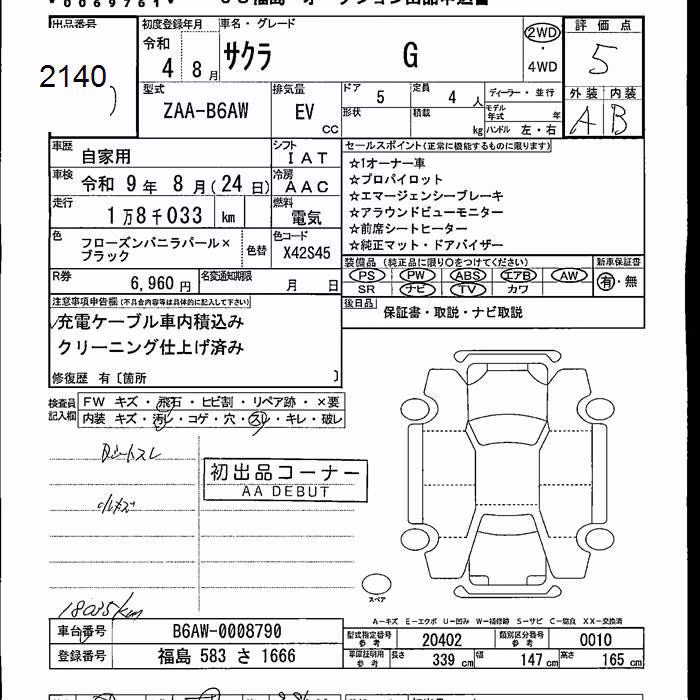 0069761
出品番号
2140
初度登録年月
令和
4 8月
車名・グレード
サクラ G
2WD
・
4WD
評価点
5
外装 内装
A B
型式
ZAA-B6AW
排気量
EV
CC
ドア
5
定員
4 人
形状
積載
kg
ディーラー・並行
モデル年式 年
ハンドル 左・右
車歴
自家用
シフト
IAT
車検
令和 9年 8月(24日)
冷房
AAC
走行
1万8千033 km
燃料
電気
色
フローズンバニラパール×
ブラック
色替
色コード
X42S45
R券
6,960 円
名変通知期限
月 日
セールスポイント(正常に機能するものに限ります)
☆1オーナー車
☆プロパイロット
☆エマージェンシーブレーキ
☆アラウンドビューモニター
☆前席シートヒーター
☆純正マット・ドアバイザー
装備品(純正品に限り○をつけてください)
PS PW ABS エアB AW
SR ナビ TV カワ
新車保証書
有・無
後日品
保証書・取説・ナビ取説
注意事項申告欄(不具合内容等は具体的に記入して下さい)
充電ケーブル車内積込み
クリーニング仕上げ済み
修復歴 有〔箇所 〕
検査員
記入欄
FW キズ・飛石・ヒビ割・リペア跡・×要
内装 キズ・汚レ・コゲ・穴・スレ・キレ・破レ
初出品コーナー
AA DEBUT
スペア
18035km
A-キズ E-エクボ U-凹み W-補修跡 S-サビ C-腐食 XX-交換済
車台番号
B6AW-0008790
登録番号
福島 583 さ 1666
型式指定番号
参考
20402
類別区分番号
参考
0010
車庫証明用
参考
長さ
339 cm
幅
147 cm
高さ
165 cm